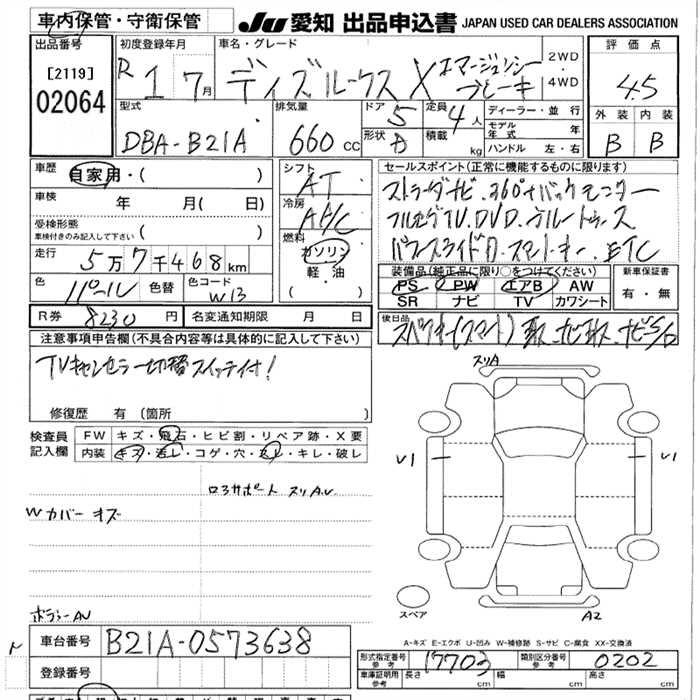 車内保管・守衛保管
JU 愛知 出品申込書 JAPAN USED CAR DEALERS ASSOCIATION
出品番号 初度登録年月 車名・グレード 評価点
[2119] R 1 7月 デイズルークス X エマージェンシーブレーキ 2WD・4WD 4.5
02064
型式 排気量 ドア 5 定員 4人 ディーラー・並行 外装 内装
DBA-B21A 660cc 形状 積載 kg モデル年式 年 B B
ハンドル 左・右
車歴 自家用・( ) シフト AT セールスポイント(正常に機能するものに限ります)
車検 年 月( 日) 冷房 A/C ストラーダナビ.360°バックモニター
受検形態 フルセグTV.DVD.ブルートゥース
車検付きのみ記入して下さい ( ) 燃料 ガソリン 軽油 ( ) パワースライドD.スマートキー.ETC
走行 5万7千468km
装備品(純正品に限り○をつけてください) 新車保証書
PS PW エアB AW 有・無
SR ナビ TV カワシート
色 パール 色替 色コード W13
R券 8230円 名変通知期限 月 日 後日品 スペアキー(スマート) 取 ナビ取
注意事項申告欄(不具合内容等は具体的に記入して下さい)
TVキャンセラー切替スイッチ付!
スリA
修復歴 有(箇所 )
検査員記入欄 FW キズ・飛石・ヒビ割・リペア跡・X要
内装 キズ・汚レ・コゲ・穴・スレ・キレ・破レ
U1 U1
ロアサポート スリA.U
Wカバー キズ
スペア
A2
A-キズ E-エクボ U-凹み W-補修跡 S-サビ C-腐食 XX-交換済
車台番号 B21A-0573638
形式指定番号 参考 17703 類別区分番号 参考 0202
登録番号 車庫証明用 参考 長さ cm 幅 cm 高さ cm